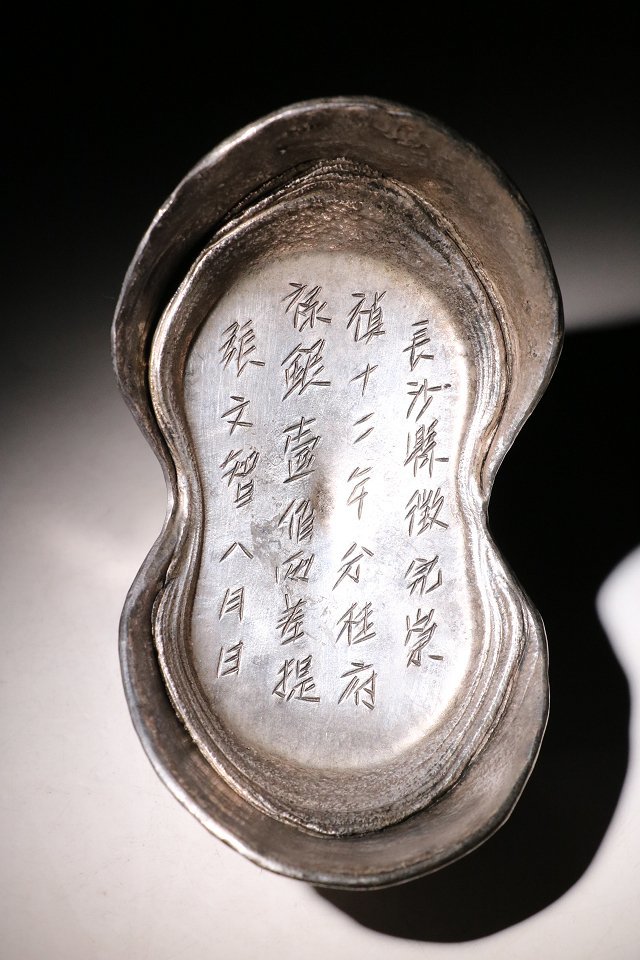 長沙縣徵完崇
禎十二年分桂府
祿銀壹佰兩差提
張文智八月日